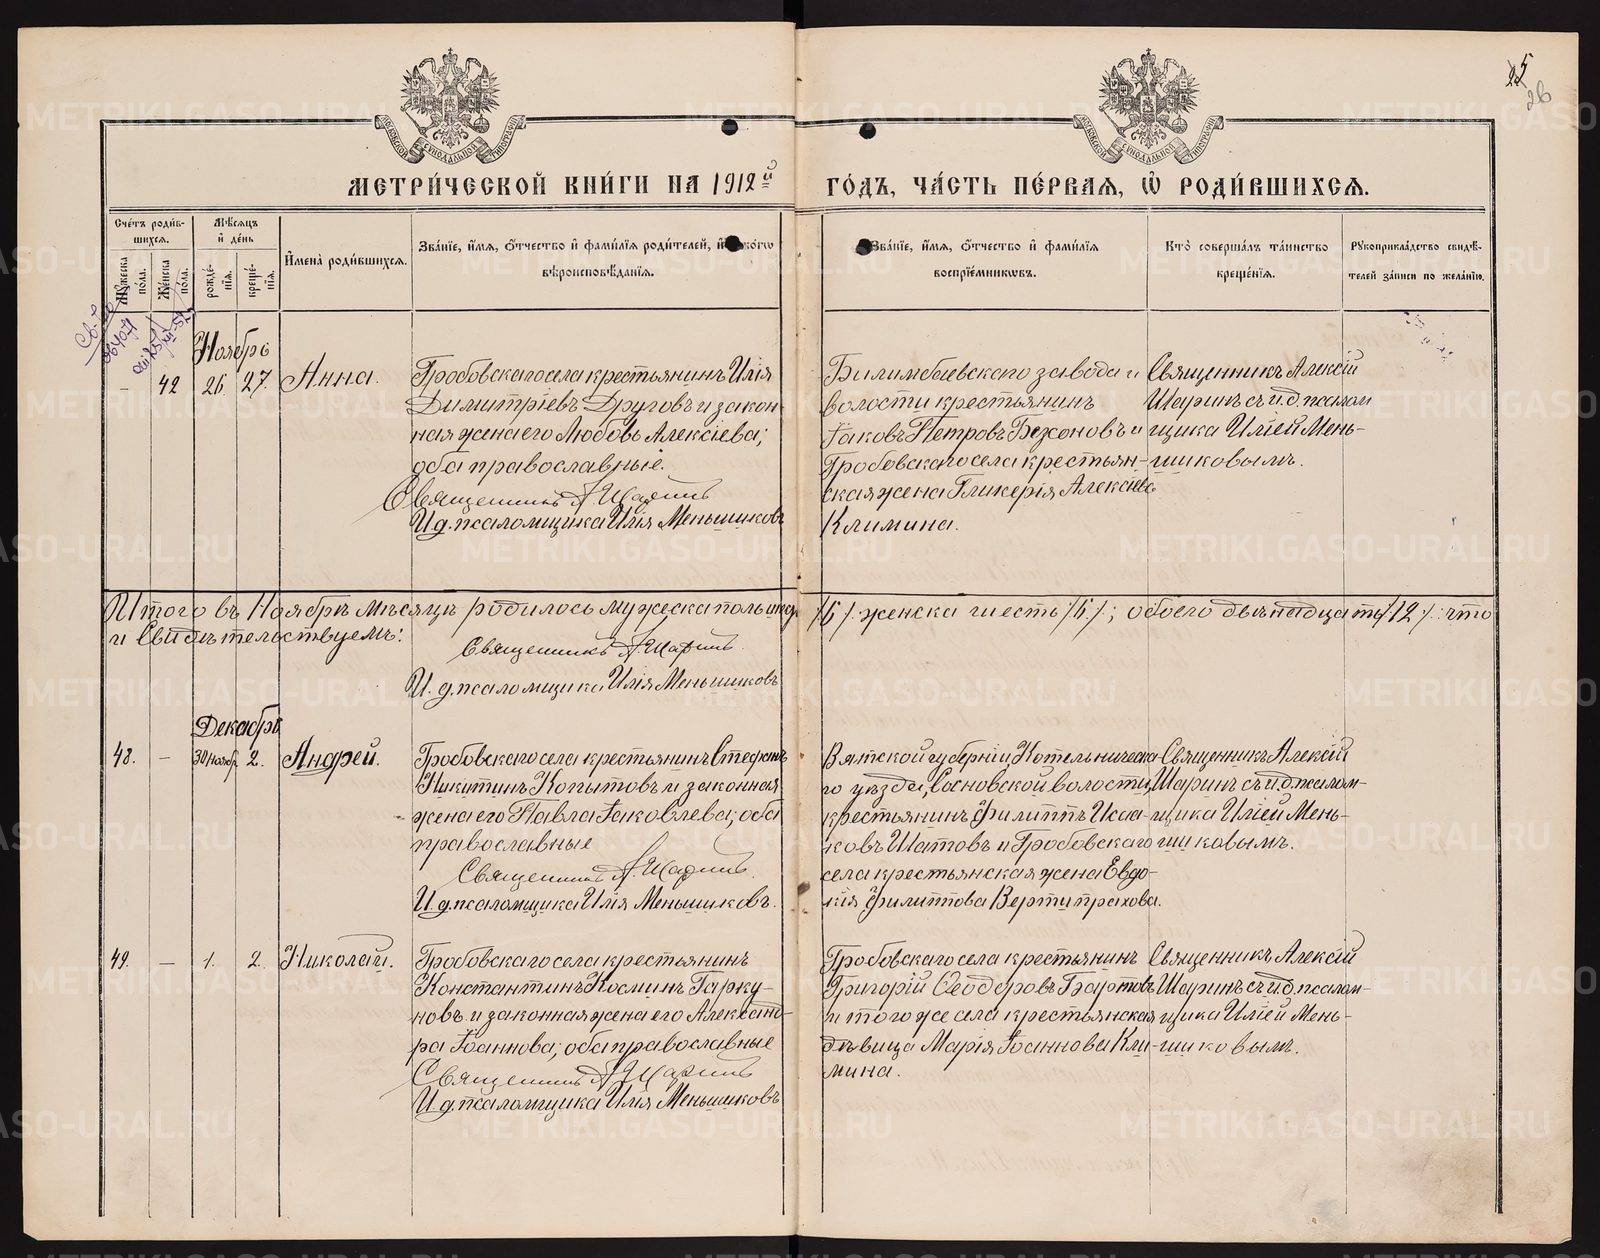 25
26
МЕТРИ́ЧЕСКОЙ КНИ́ГИ НА 1912й ГО́ДЪ, ЧА́СТЬ ПЕ́РВАЯ, Ѡ҆ РОДИ́ВШИХСЯ.
Сче́тъ роди́в-
шихся.
Мꙋ́жеска по́ла.
Же́нска по́ла.
Мѣ́сяцъ и҆ де́нь
рожде́-нїя.
креще́-нїя.
И҆мена̀ роди́вшихся.
Зва́нїе, и҆́мя, ѻ҆́тчество и҆ фами́лїя роди́телей, и҆ како́гѡ
вѣроисповѣ́данїя.
Зва́нїе, и҆́мя, ѻ҆́тчество и҆ фами́лїя
воспрїе́мникѡвъ.
Кто̀ соверша́лъ та́инство
креще́нїя.
Рꙋкоприкла́дство свидѣ́-
телей за́писи по жела́нїю.
Ноябрь
– 42 26. 27. Анна.
Гробовскаго села крестьянинъ Илія
Димитріевъ Друговъ и закон-
ная жена его Любовь Алексіева;
оба православные.
Священникъ А. Шаринъ
И д. псаломщика Илія Меньшиковъ
Билимбаевскаго завода и
волости крестьянинъ
Іаковъ Петровъ Бежоновъ и
Гробовскаго села крестьян-
ская жена Гликерія Алексіева
Климина.
Священникъ Алексій
Шаринъ съ и.д. псалом
щика Иліей Мень-
шиковымъ.
Итого въ Ноябрѣ мѣсяцѣ родилось мужеска пола шесть /6/ женска шесть /6/; обоего двѣнадцать /12/: что
и свидѣтельствуемъ:
Священникъ А Шаринъ.
И. д. псаломщика Илія Меньшиковъ
Декабрь
48. – 30 ноябр. 2. Андрей.
Гробовскаго села крестьянинъ Стефанъ
Никитинъ Копытовъ и законная
жена его Павла Іаковлева; оба
православные
Священникъ А. Шаринъ.
И. д. псаломщика Илія Меньшиковъ.
Вятской губерніи Котельническа-
го уѣзда, Сосновской волости,
крестьянинъ Филиппъ Исаа-
ковъ Шатовъ и Гробовскаго
села крестьянская жена Евдо-
кія Филиппова Вертипрахова.
Священникъ Алексій
Шаринъ съ и.д. псалом-
щика Иліей Мень-
шиковымъ.
49. – 1. 2. Николай.
Гробовскаго села крестьянинъ
Константинъ Космин Гарку-
новъ и законная жена его Александ-
ра Іоаннова; оба православные
Священникъ А Шаринъ
И д. псаломщика Илія Меньшиковъ
Гробовскаго села крестьянинъ
Григорій Ѳеодоровъ Бортовъ
и того же села крестьянская
дѣвица Марія Іоаннова Кли-
мина.
Священникъ Алексій
Шаринъ съ и.д. псалом-
щика Иліей Мень-
шиковымъ.
METRIKI.GASO-URAL.RU